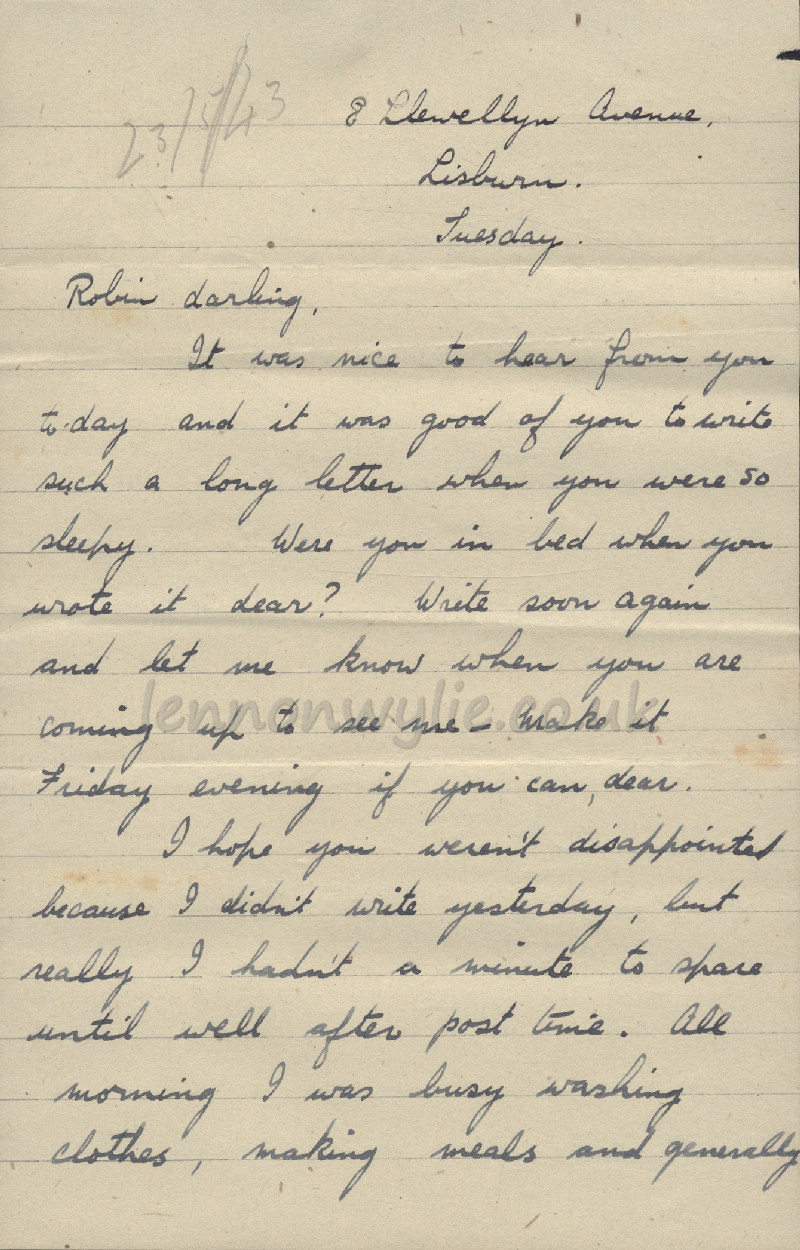 23/5/43
8 Llewellyn Avenue,
Lisburn.
Tuesday.
Robin darling,
It was nice to hear from you
to-day and it was good of you to write
such a long letter when you were so
sleepy. Were you in bed when you
wrote it dear? Write soon again
and let me know when you are
lennonwylie.co.uk
coming up to see me - Make it
Friday evening if you can, dear.
I hope you weren't disappointed
because I didn't write yesterday, but
really I hadn't a minute to spare
until well after post time. All
morning I was busy washing
clothes, making meals and generally